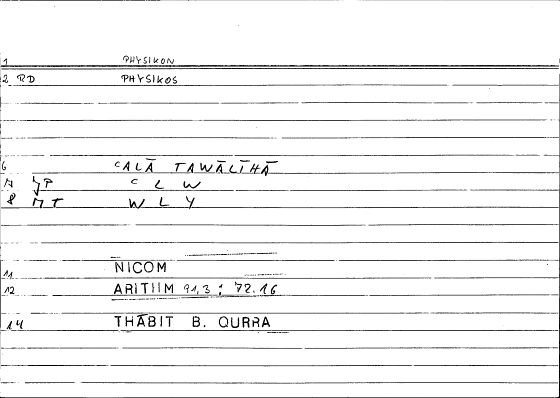 1 PHYSIKON
2 RD PHYSIKOS
6 ʿALĀ TAWĀLĪHĀ
C L W
8 MT W L Y
11 NICOM
12 ARITIIM 91,3 : 72.16
14 THĀBIT B. QURRA